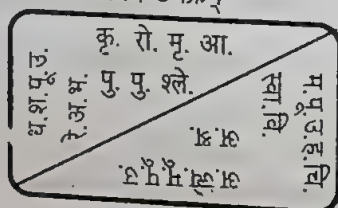 कृ. रो. मृ. आ.
पु. पु. श्ले.
ध.श.पू.उ.
रे.अ.भ.
म.पू.उ.ह.चि.
स्वा.वि.
अ.ज्ये.मू.पू.उ.
अ.श्र.